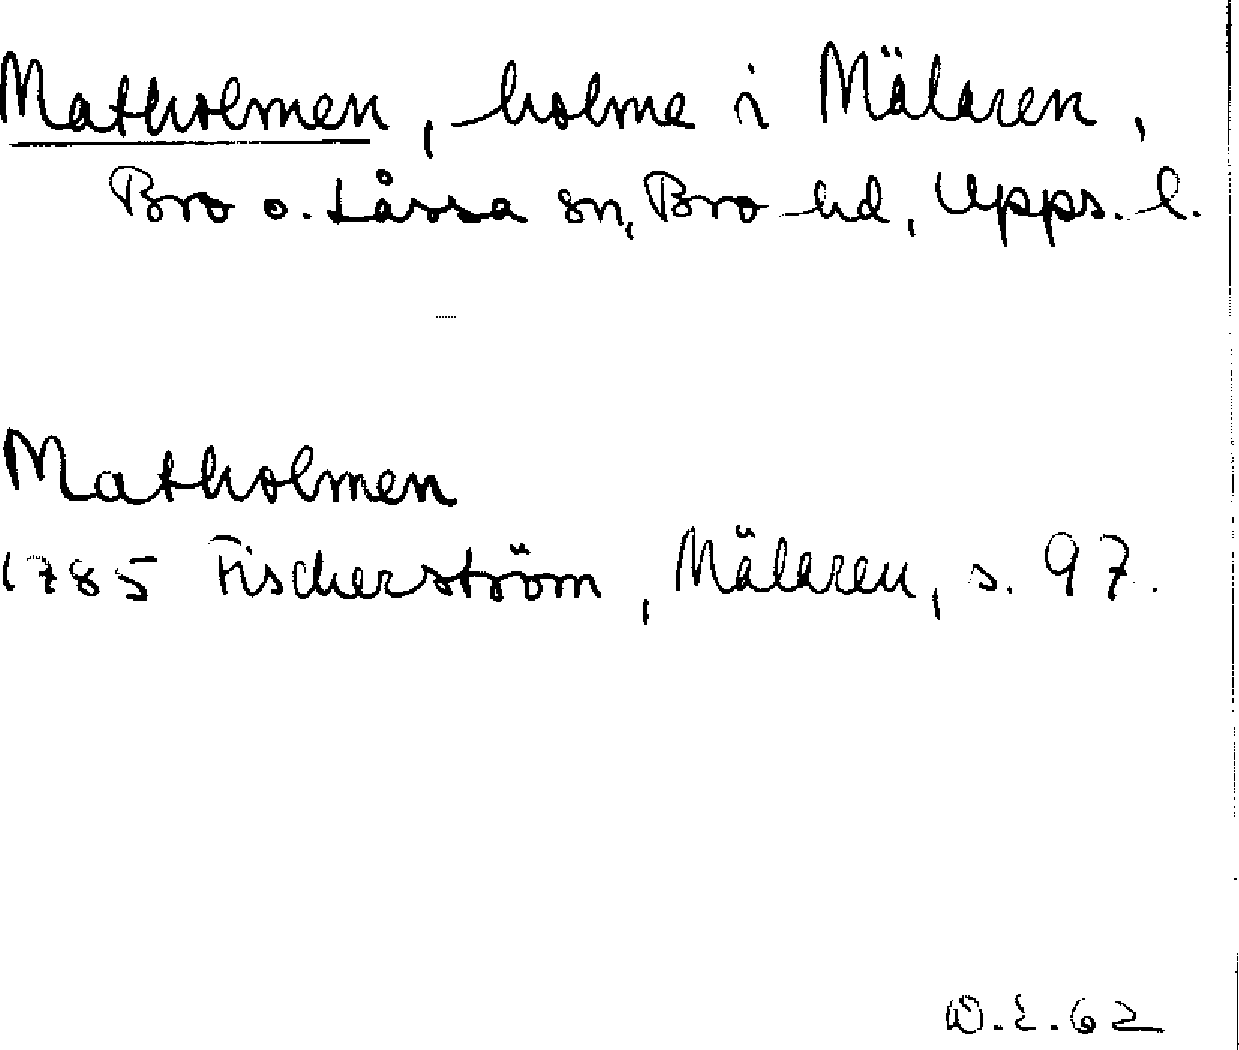 Matholmen, holme i Mälaren,
Bro o. Låssa sn, Bro hd, Upps. l.
Matholmen
1785 Fischerström, Mälaren, s. 97.
W.E.62